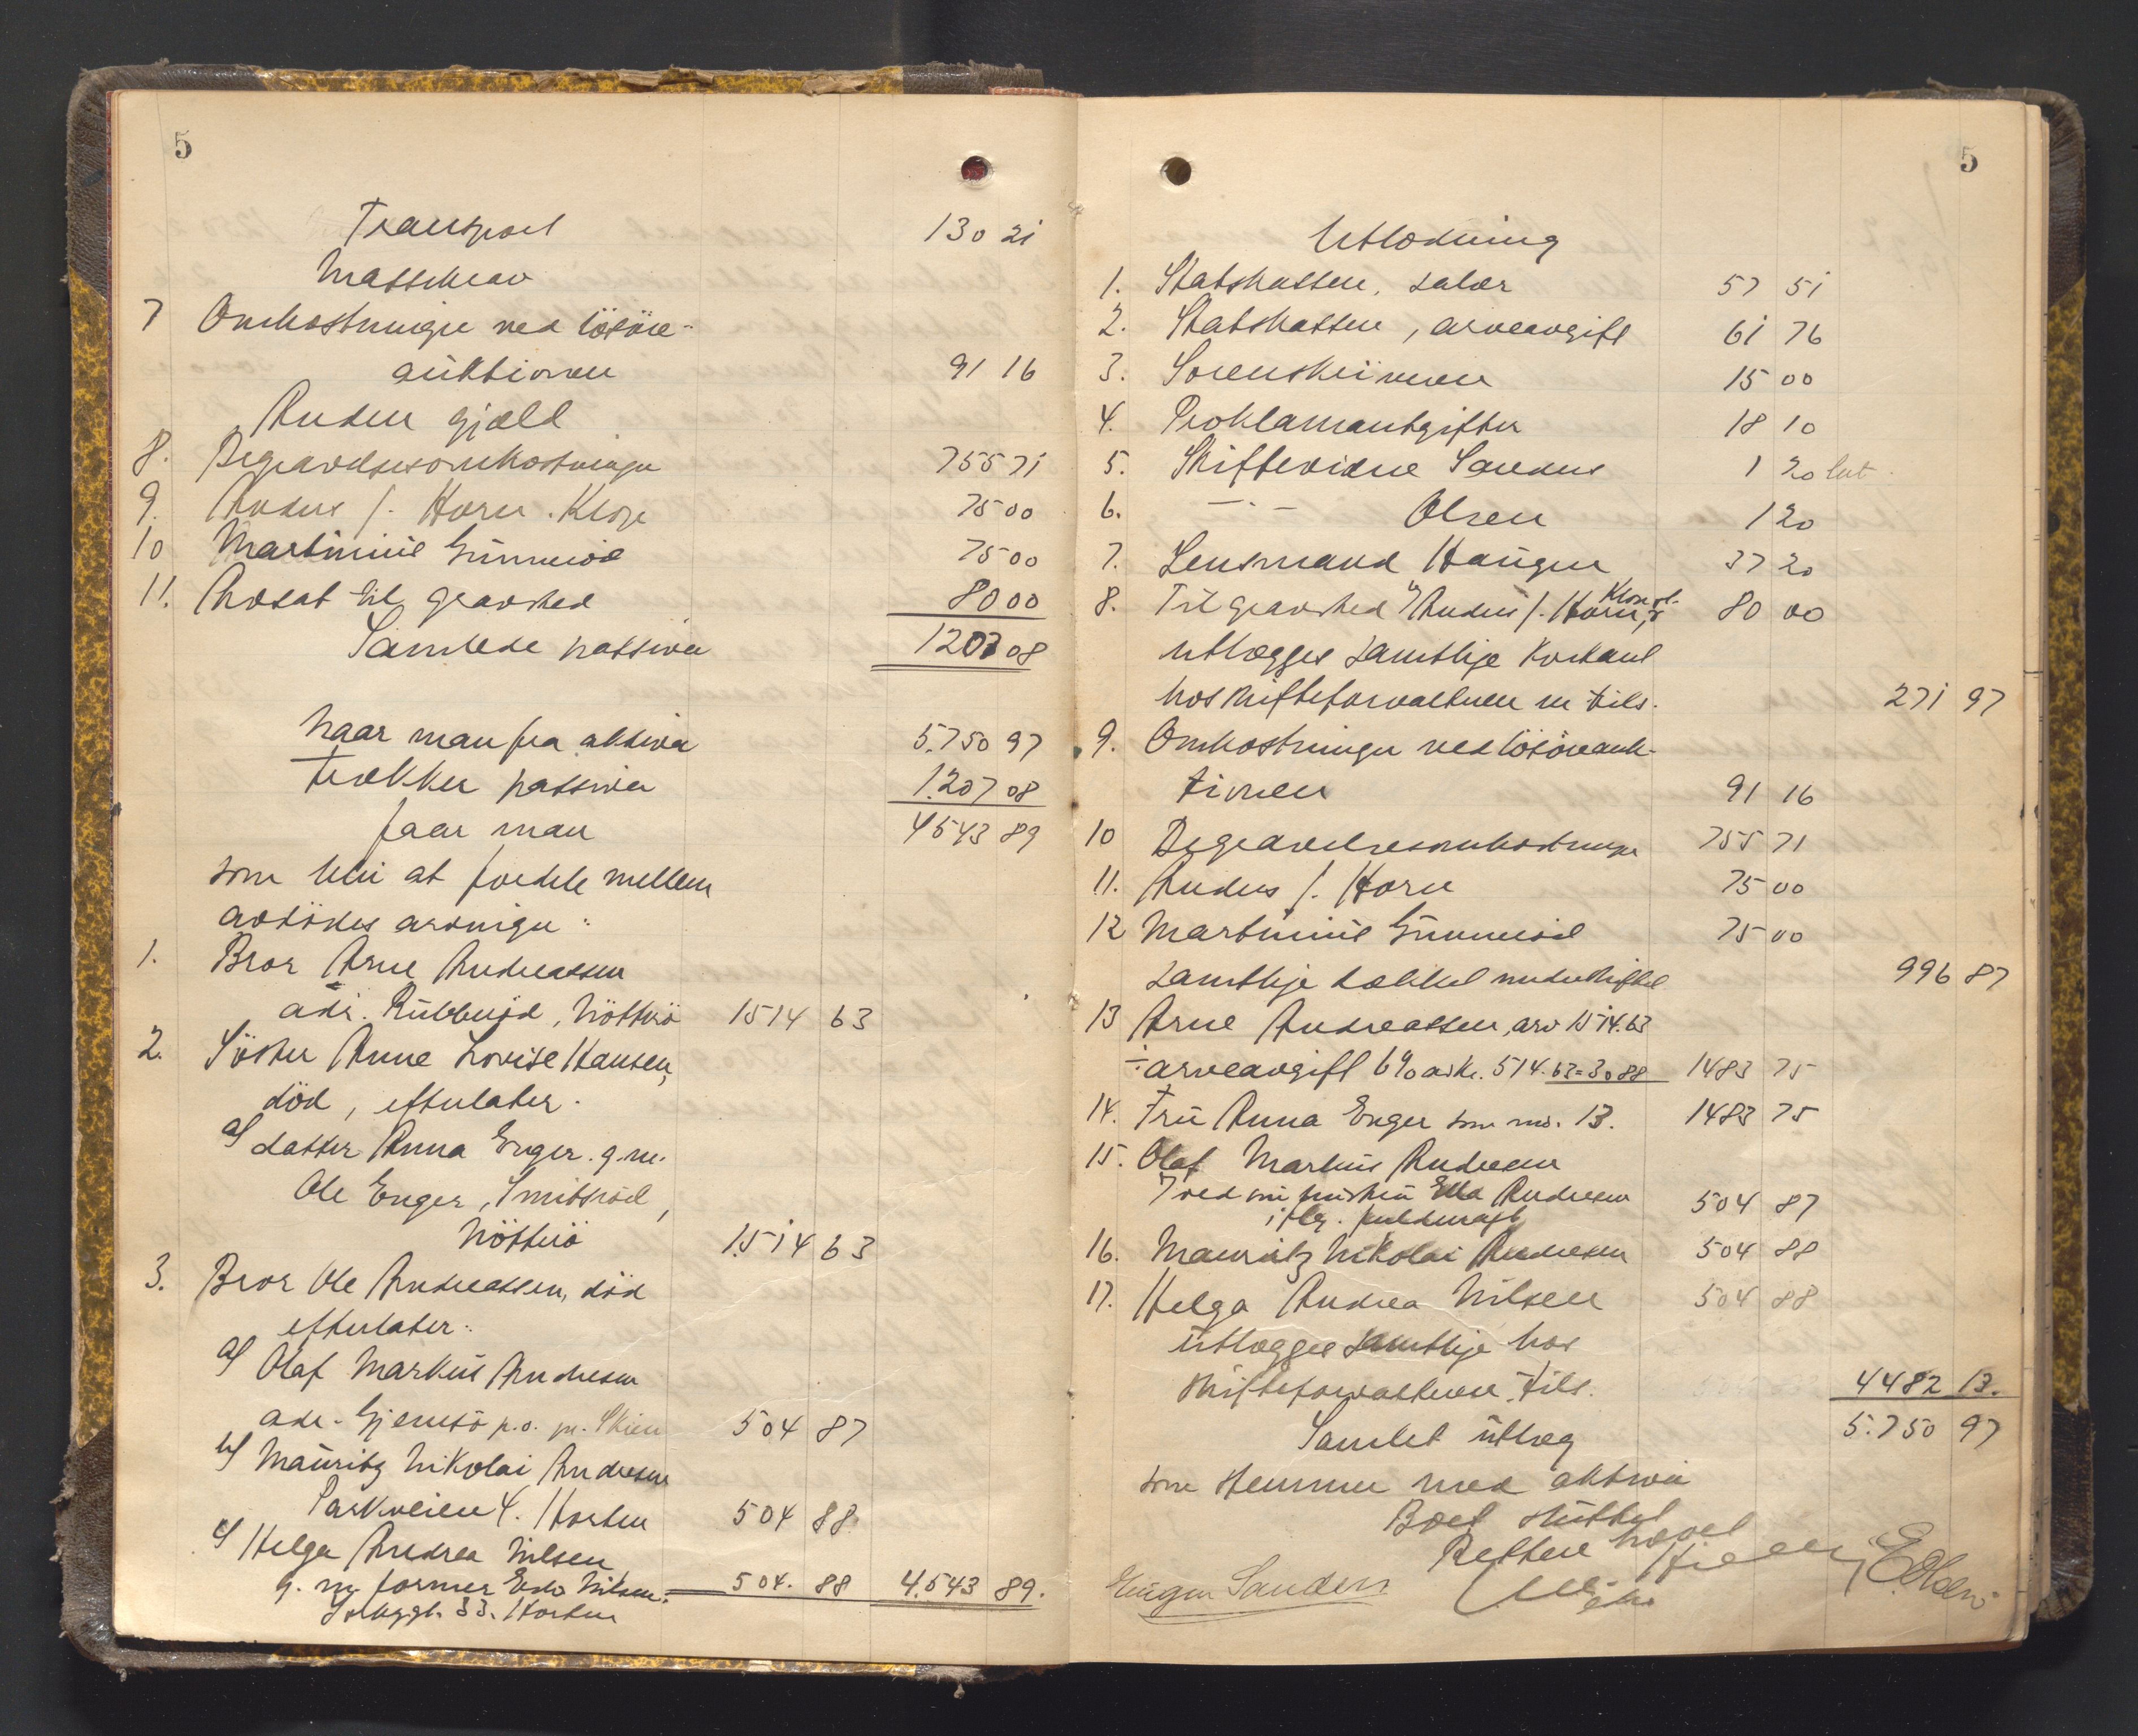 5
Transport 130 21
Massekrav
7 Omkostninger ved lösöre-
auktionen 91 16
Anden gjæld
8. Begravelsesomkostninger 755 71
9. Anders J. Horn. Klop 75 00
10 Martinius Gunnerød 75 00
11. Avsat til gravsted 80 00
Samlede passiva 1207 08
Naar man fra aktiva 5.750 97
trækker passiva 1.207 08
faar man 4543 89
som blir at fordele mellem
avdödes arvinger:
1. Bror Arne Andreassen
adr. Rubberød, Nötterö 1514 63
2. Söster Anne Lovise Hansen,
död, efterlater.
a) datter Anna Enger. g.m.
Ole Enger, Smitsrød,
Nötterö 1.514 63
3. Bror Ole Andreassen, död
efterlater:
a) Olaf Markus Andresen
adr. Gjemsö p.o. pr. Skien 504 87
b) Mauritz Nikolai Andresen
Parkveien 4. Horten 504 88
c) Helga Andrea Nilsen
g. m. former Nilsen. 504. 88 4.543 89.
33. Horten
5
Utlodning
1. Statskassen, salær 57 51
2. Statskassen, arveavgift 61 76
3. Sorenskriveren 15 00
4. Proklamautgifter 18 10
5. Skiftevidne Sanders 1 20
6. —"— Olsen 1 20
7. Lensmand Haugen 37 20
8. Til gravsted v/ Anders J. Horn, Klop 80 00
utlægges samtlige kontant
hos skifteforvalteren m tils. 271 97
9. Omkostninger ved lösöreauk-
tionen 91 16
10 Begravelsesomkostninger 755 71
11. Anders J. Horn 75 00
12 Martinius Gunnerød 75 00
samtlige dækket under skiftet 996 87
13 Arne Andreassen, arv 1514.63
÷ arveavgift 6% av kr. 514.63 = 30 88 1483 75
14. Fru Anna Enger som nr. 13. 1483 75
15. Olaf Markus Andresen
ved sin hustru Ella Andresen
iflg. fuldmagt 504 87
16. Mauritz Nikolai Andresen 504 88
17. Helga Andrea Nilsen 504 88
utlægges samtlige hos
skifteforvalteren, tils. 4482 13.
Samlet utlæg 5.750 97
som stemmer med aktiva
Boet sluttet
Retten hævet
Eugen Sanders E Olsen